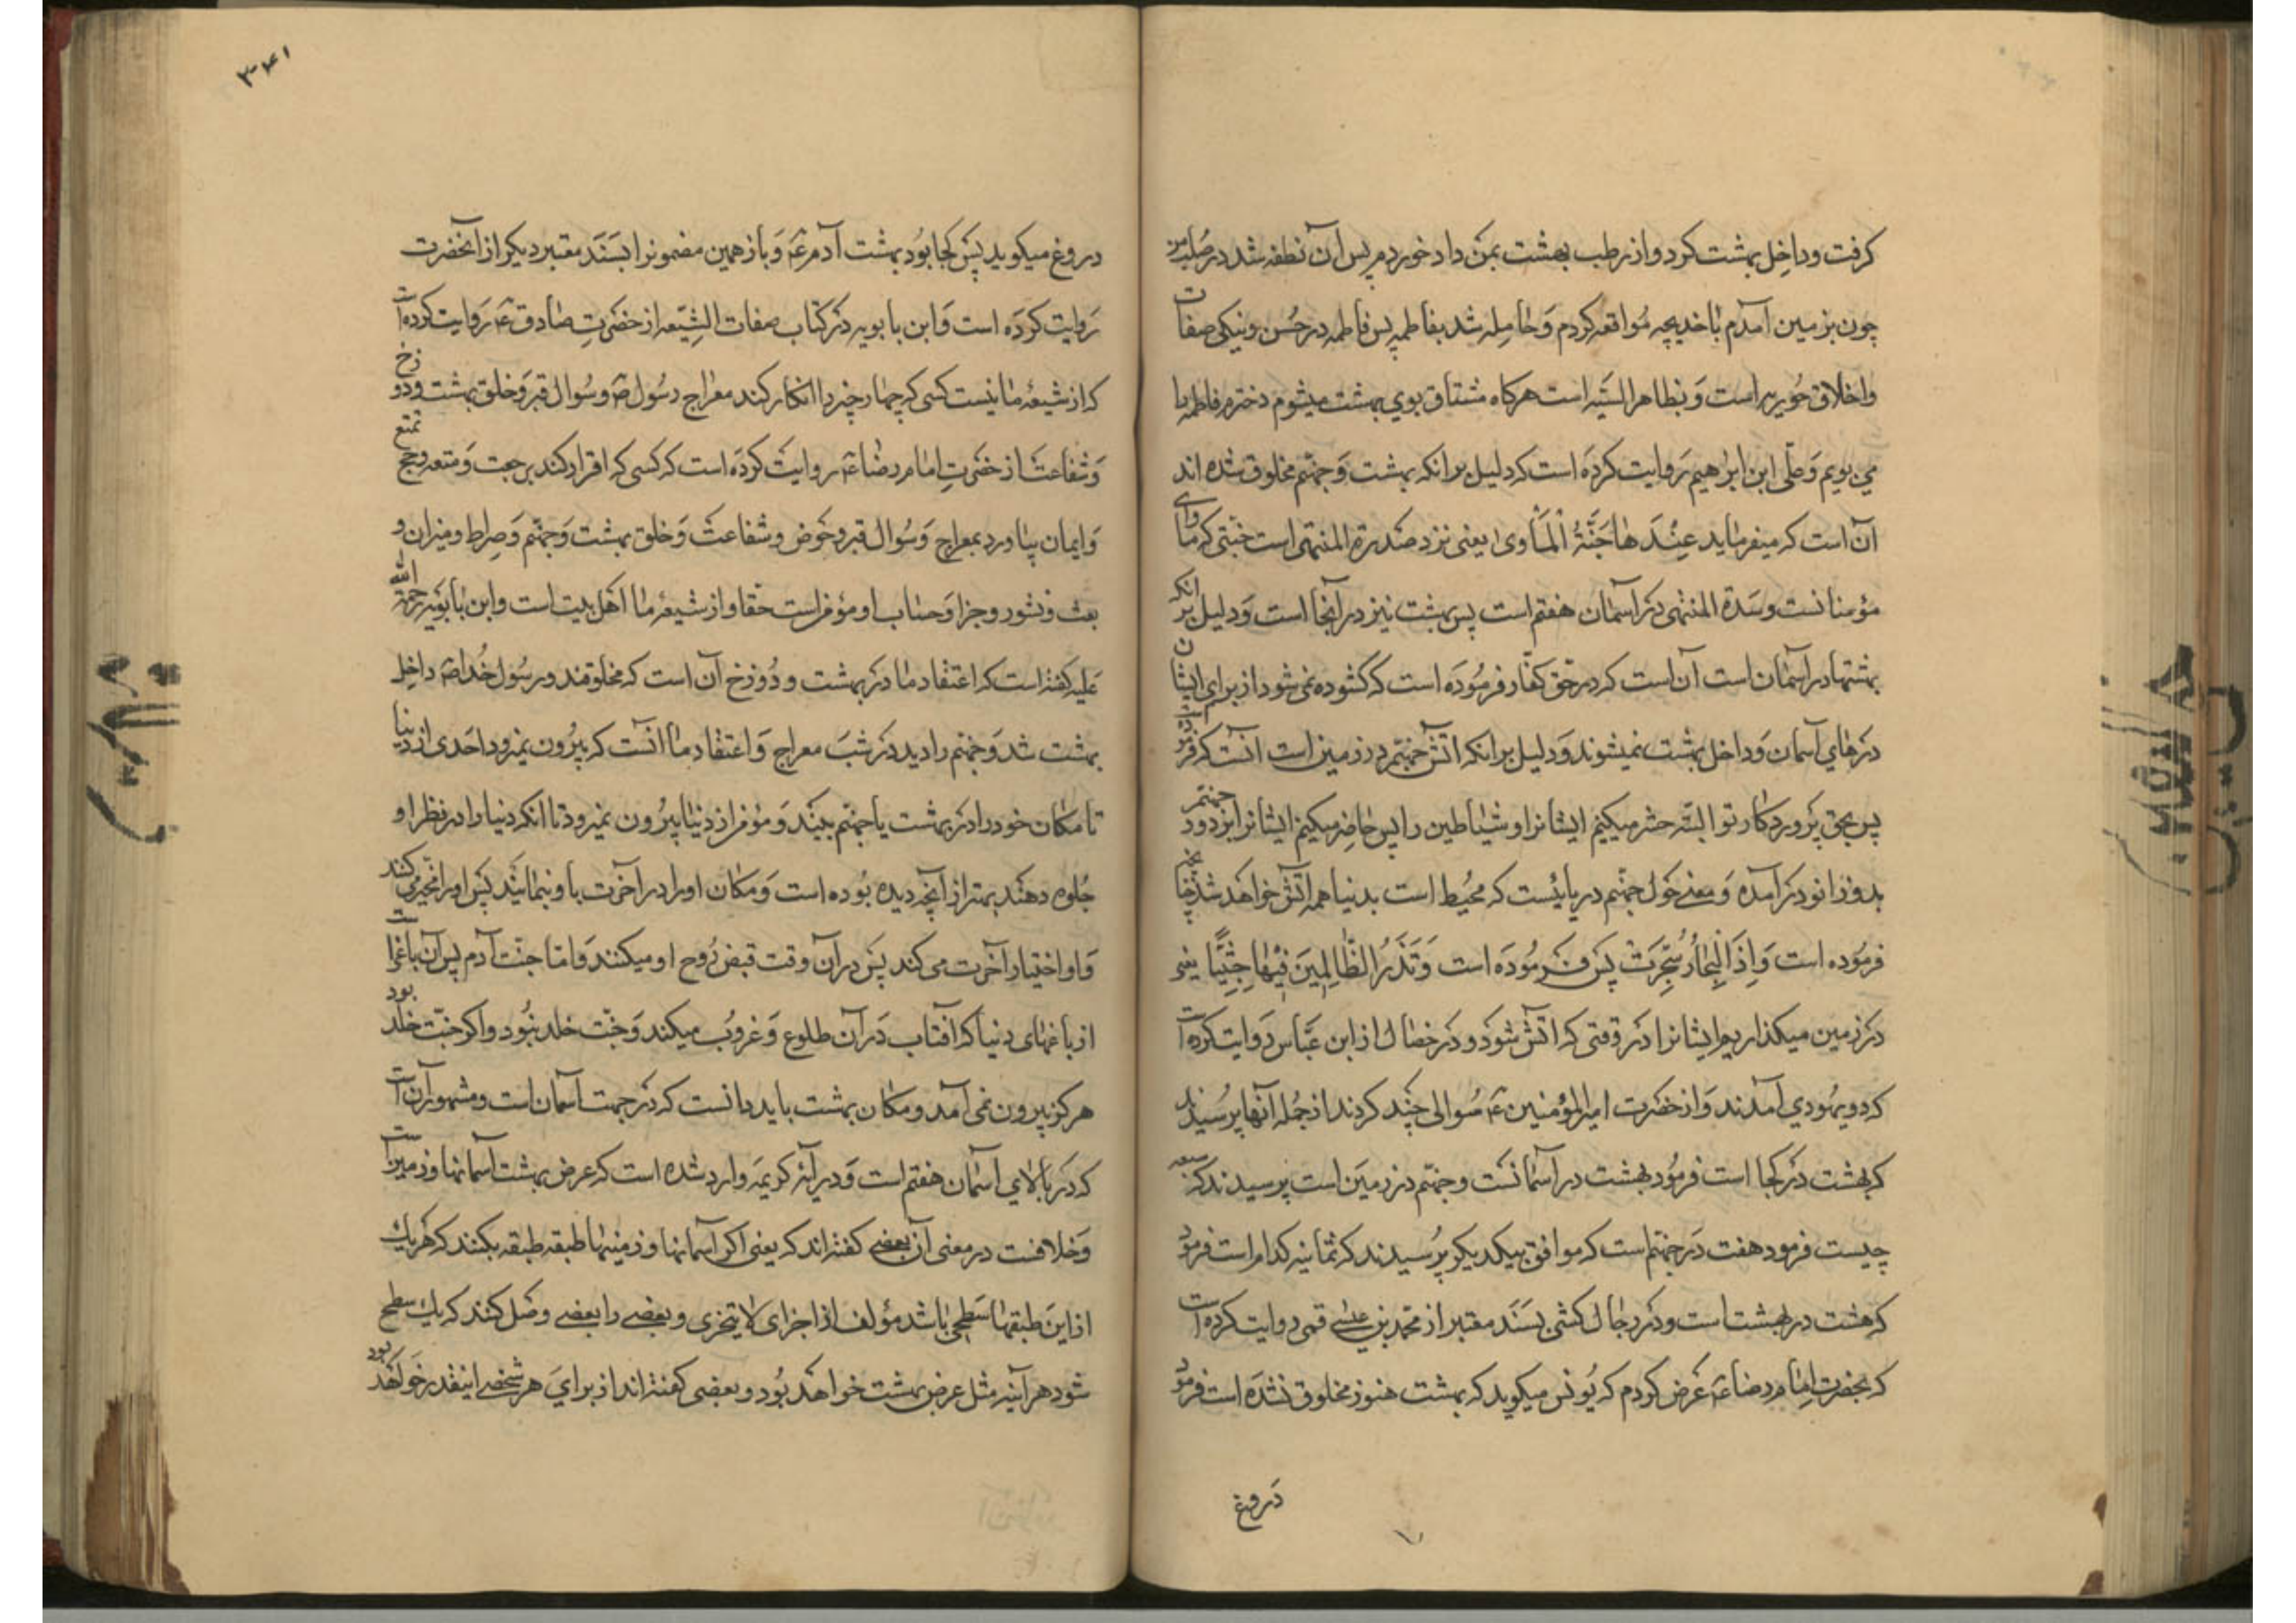 گرفت و داخل بهشت کرد و از رطب بهشت بمن داد خوردم پس آن نطفه شد در صلب من
چون بزمین آمدم با خدیجه مواقعه کردم و حامله شد بفاطمه پس فاطمه در حسن و نیکی صفات
و اخلاق حوریه است و بظاهر انسیه است هرگاه مشتاق بوی بهشت میشوم دخترم فاطمه را
می بویم و علی ابن ابراهیم روایت کرده است که دلیل بر انکه بهشت و جهنم مخلوق شده اند
آن است که میفرماید عِنْدَهَا جَنَّةُ الْمَأْوىٰ یعنی نزد صدرة المنتهی است جنتی که ماوای
مؤمنانست و سدة المنتهی در آسمان هفتم است پس بهشت نیز در آنجا است و دلیل بر انکه
بهشتها در اسمان است آن است که در حق کفار فرموده است که گشوده نمی شود از برای ایشان
درهای آسمان و داخل بهشت نمیشوند و دلیل بر انکه اتش جهنم در زمین است آنست که فرموده است
پس بحق پروردگار تو البته حشر میکنیم ایشانرا و شیاطین را پس حاضر میکنیم ایشانرا بر دور جهنم
بدو زانو در آمده و معنی حول جهنم دریائیست که محیط است بدنیا همه آتش خواهد شد چنانچه
فرموده است وَاِذَا الْبِحَارُ سُجِّرَتْ پس فرموده است وَنَذَرُ الظَّالِمِینَ فِیْهَا جِثِیًّا یعنی
در زمین میگذاریم ایشانرا در وقتی که اتش شود و در خصال از ابن عباس روایت کرده است
که دو یهودی آمدند و از حضرت امیر المؤمنین ع سوالی چند کردند از جمله آنها پرسیدند
که بهشت در کجا است فرمود بهشت در آسمانست و جهنم در زمین است پرسیدند که سبعه
چیست فرمود هفت در جهنم است که موافق یکدیگر پرسیدند که ثمانیه کدام است فرمود
که هشت در بهشت است و در رجال کشی بسند معتبر از محمد بن عیسی قمی روایت کرده است
که بحضرت امام رضا ع عرض کردم که یونس میگوید که بهشت هنوز مخلوق نشده است فرمود
دروغ
۳۴۱
دروغ میگوید پس کجا بود بهشت آدم ع و باز همین مضمونرا بسند معتبر دیگر از آنحضرت
روایت کرده است و ابن بابویه در کتاب صفات الشیعه از حضرت صادق ع روایت کرده است
که از شیعه ما نیست کسی که چهار چیز را انکار کند معراج رسول ص و سوال قبر و خلق بهشت و دوزخ
و شفاعت از حضرت امام رضا ع روایت کرده است که کسی که اقرار کند برجعت و متعه و حج تمتع
و ایمان بیاورد بمعراج و سوال قبر و حوض و شفاعت و خلق بهشت و جهنم و صراط و میزان و
بعث و نشور و جزا و حساب او مؤمن است حقا و از شیعه ما اهل بیت است و ابن بابویه رحمة الله
علیه گفته است که اعتقاد ما در بهشت و دوزخ آن است که مخلوقند و رسول خدا ص داخل
بهشت شد و جهنم را دید در شب معراج و اعتقاد ما انست که بیرون نمیرود احدی از دنیا
تا مکان خود را در بهشت یا جهنم ببیند و مؤمن از دنیا بیرون نمیرود تا انکه دنیا را در نظر او
جلوه دهند بهتر از آنچه دیده بوده است و مکان او را در آخرت باو بنمایند پس او را مخیر می کنند
و او اختیار آخرت می کند پس در آن وقت قبض روح او میکنند و اما جنت آدم پس آن باغ است
از باغهای دنیا که افتاب در آن طلوع و غروب میکند و جنت خلد نبود و اگر جنت خلد بود
هرگز بیرون نمی آمد و مکان بهشت باید دانست که در جهت آسمان است و مشهور آن است
که در بالای آسمان هفتم است و در آیه کریمه وارد شده است که عرض بهشت آسمانها و زمین است
و خلافست در معنی آن بعضی گفته اند که یعنی اگر آسمانها و زمینها طبقه طبقه بکنند که هر یک
از این طبقها سطحی باشد مؤلف از اجزای لا یتجزی و بعضی را ببعضی وصل کنند که یک سطح
شود هر آینه مثل عرض بهشت خواهد بود و بعضی گفته اند از برای هر شخصی اینقدر خواهد بود